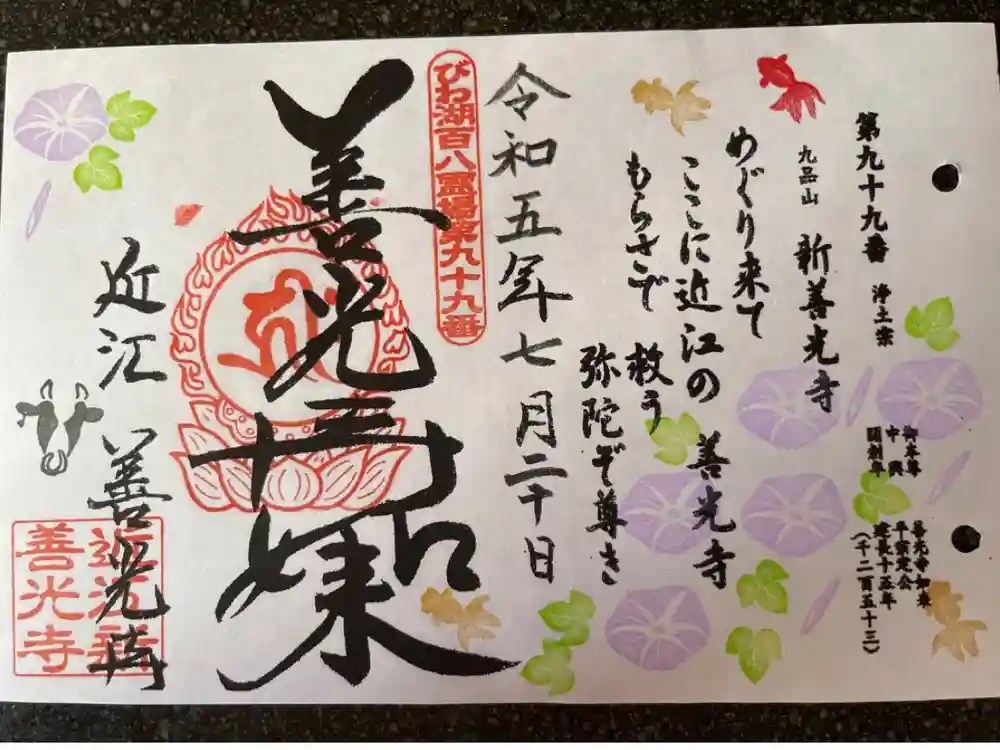 第九十九番 浄土宗
御本尊 善光寺如来
中興 平宗定公
開創年 建長十五年
(千二百五十三)
九品山 新善光寺
めぐり来て
ここに近江の 善光寺
もらさで 救う
弥陀ぞ尊き
令和五年七月二十日
びわ湖百八霊場第九十九番
善光寺如来
近江 善光寺
近江新
善光寺